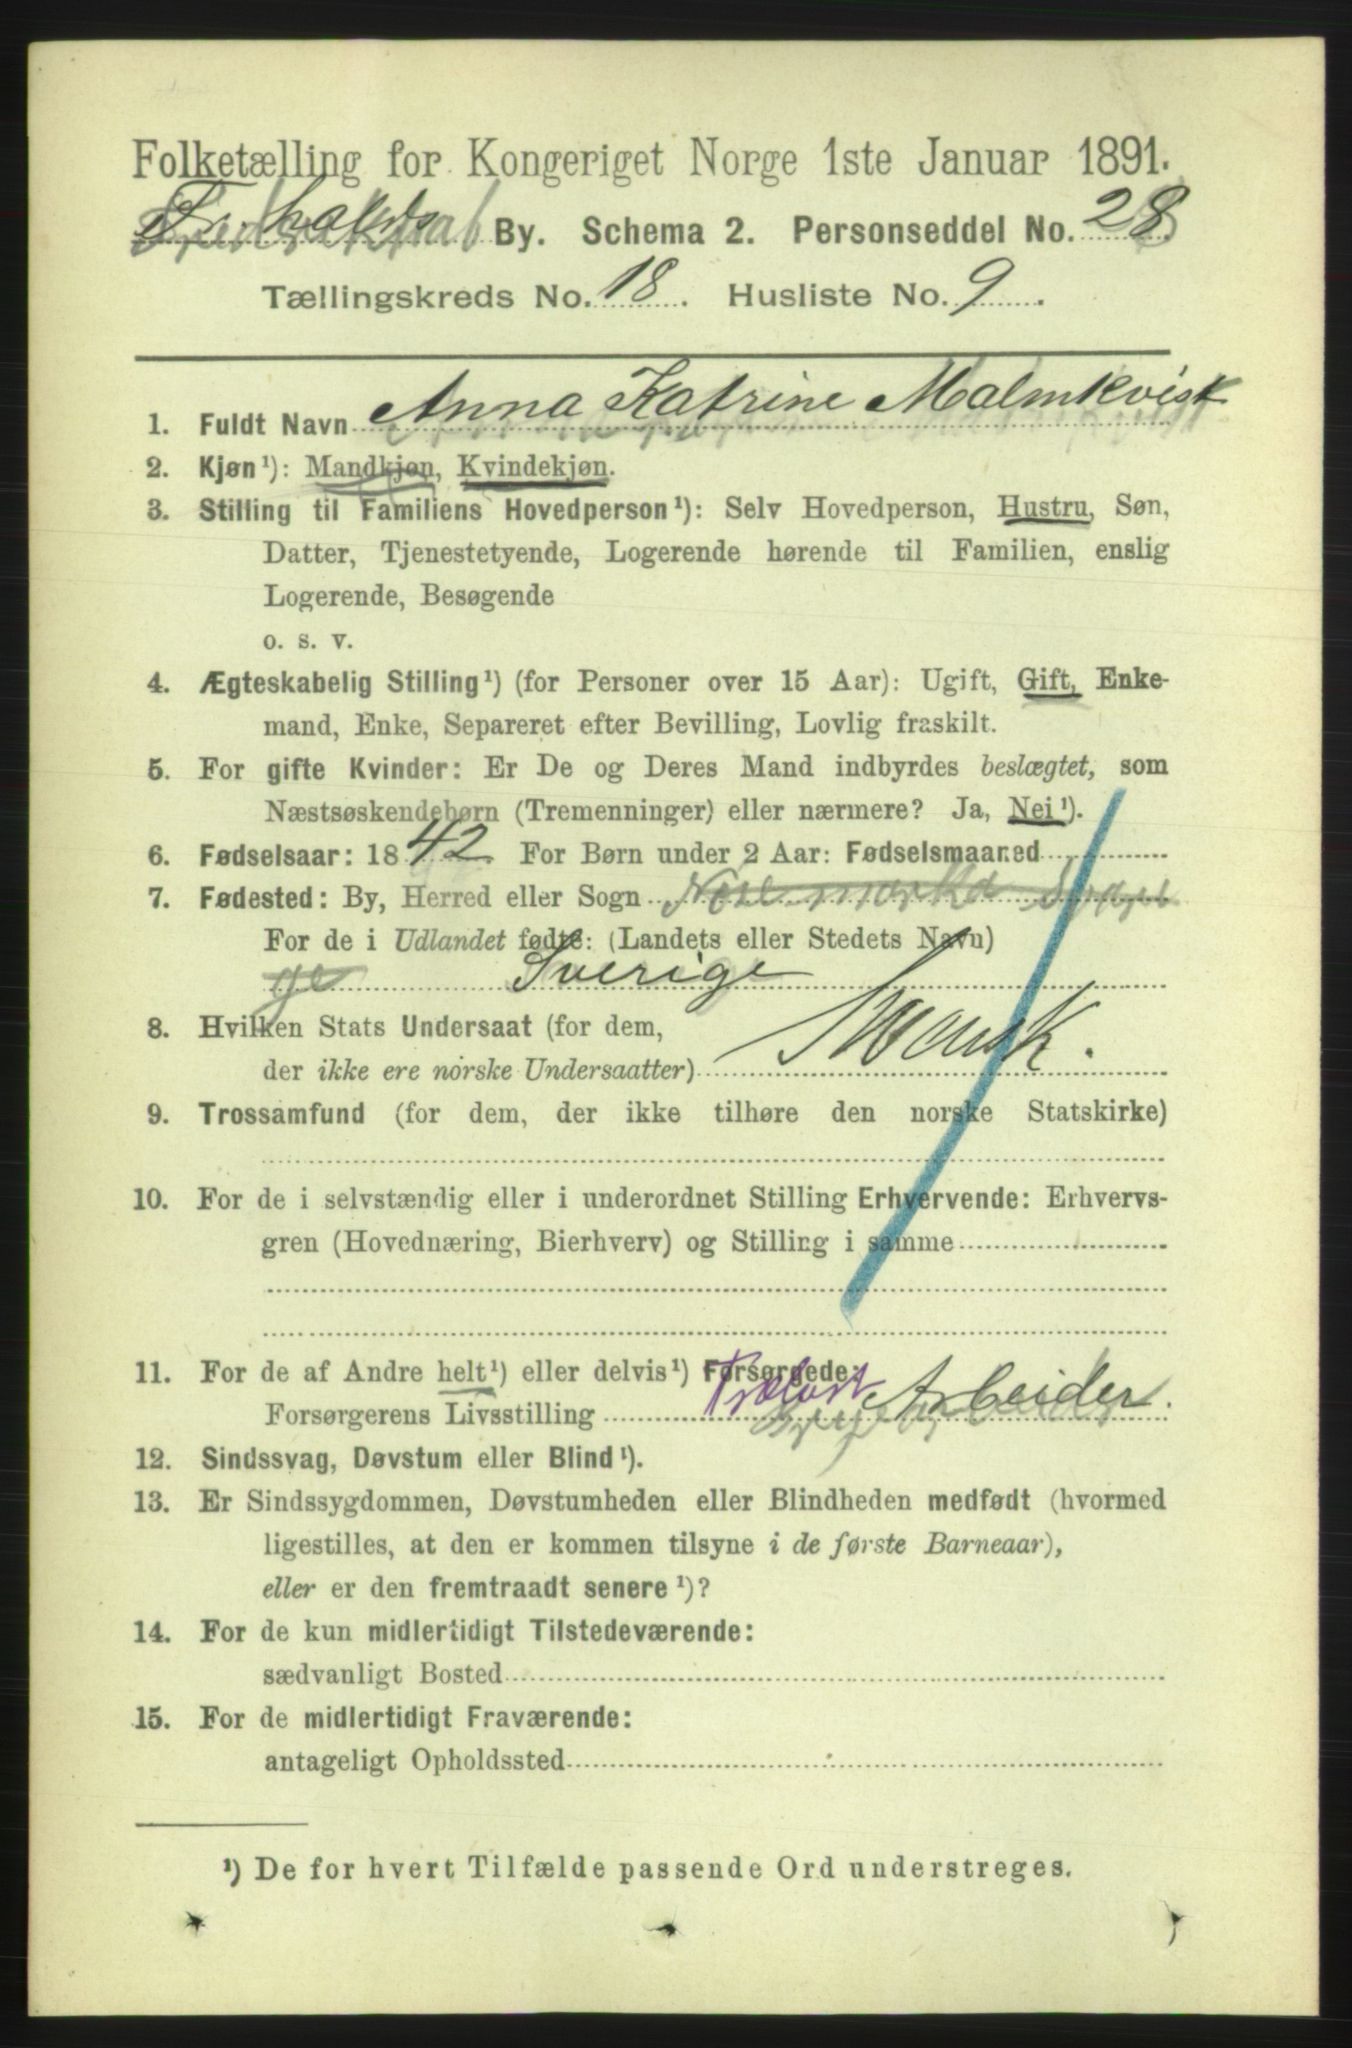 Folketælling for Kongeriget Norge 1ste Januar 1891.
Fr.halds By. Schema 2. Personseddel No. 28
Tællingskreds No. 18. Husliste No. 9.
1. Fuldt Navn Anna Katrine Malmkvist
2. Kjøn¹): Mandkjøn, Kvindekjøn.
3. Stilling til Familiens Hovedperson¹): Selv Hovedperson, Hustru, Søn,
Datter, Tjenestetyende, Logerende hørende til Familien, enslig
Logerende, Besøgende
o. s. v.
4. Ægteskabelig Stilling¹) (for Personer over 15 Aar): Ugift, Gift, Enke-
mand, Enke, Separeret efter Bevilling, Lovlig fraskilt.
5. For gifte Kvinder: Er De og Deres Mand indbyrdes beslægtet, som
Næstsøskendebørn (Tremenninger) eller nærmere? Ja, Nei¹).
6. Fødselsaar: 1842. For Børn under 2 Aar: Fødselsmaaned
7. Fødested: By, Herred eller Sogn
For de i Udlandet fødte: (Landets eller Stedets Navn)
ge Sverige
8. Hvilken Stats Undersaat (for dem,
der ikke ere norske Undersaatter) Svensk.
9. Trossamfund (for dem, der ikke tilhøre den norske Statskirke)
10. For de i selvstændig eller i underordnet Stilling Erhvervende: Erhvervs-
gren (Hovednæring, Bierhverv) og Stilling i samme
11. For de af Andre helt¹) eller delvis¹) Forsørgede:
Forsørgerens Livsstilling Trælast Arbeider.
12. Sindssvag, Døvstum eller Blind¹).
13. Er Sindssygdommen, Døvstumheden eller Blindheden medfødt (hvormed
ligestilles, at den er kommen tilsyne i de første Barneaar),
eller er den fremtraadt senere¹)?
14. For de kun midlertidigt Tilstedeværende:
sædvanligt Bosted
15. For de midlertidigt Fraværende:
antageligt Opholdssted
¹) De for hvert Tilfælde passende Ord understreges.